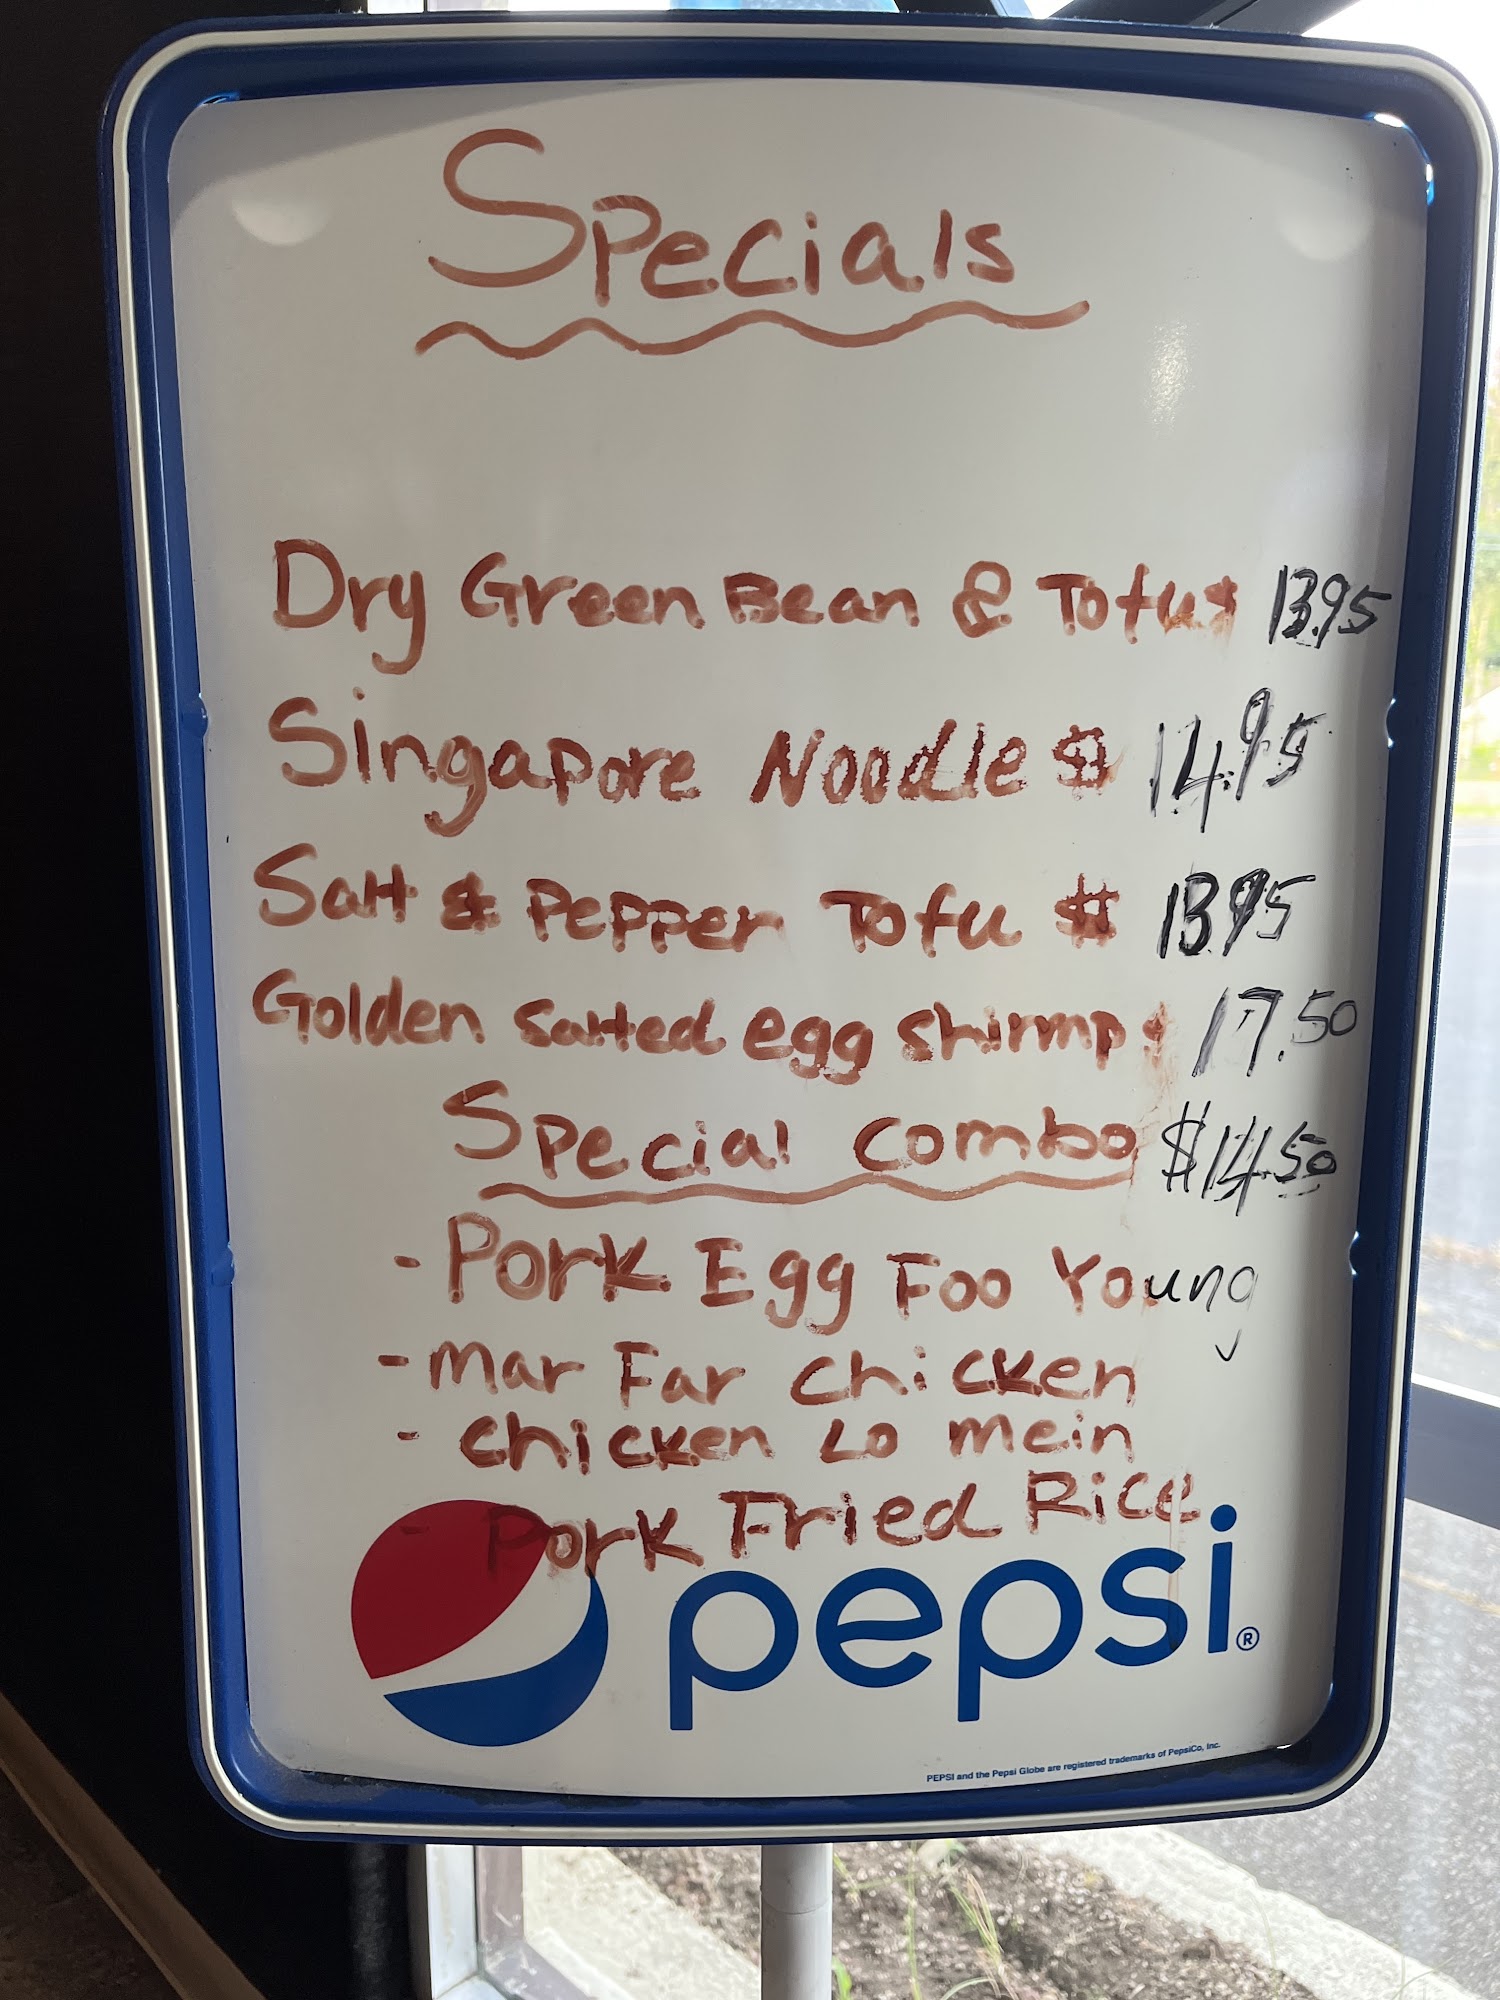 Specials
Dry Green Bean & Tofu $ 13.95
Singapore Noodle $ 14.95
Salt & Pepper Tofu $ 13.95
Golden salted egg shirmp $ 17.50
Special combo $14.50
- Pork Egg Foo Young
- mar Far chicken
- chicken Lo mein
- Pork Fried Rice
pepsi®
PEPSI and the Pepsi Globe are registered trademarks of PepsiCo, Inc.